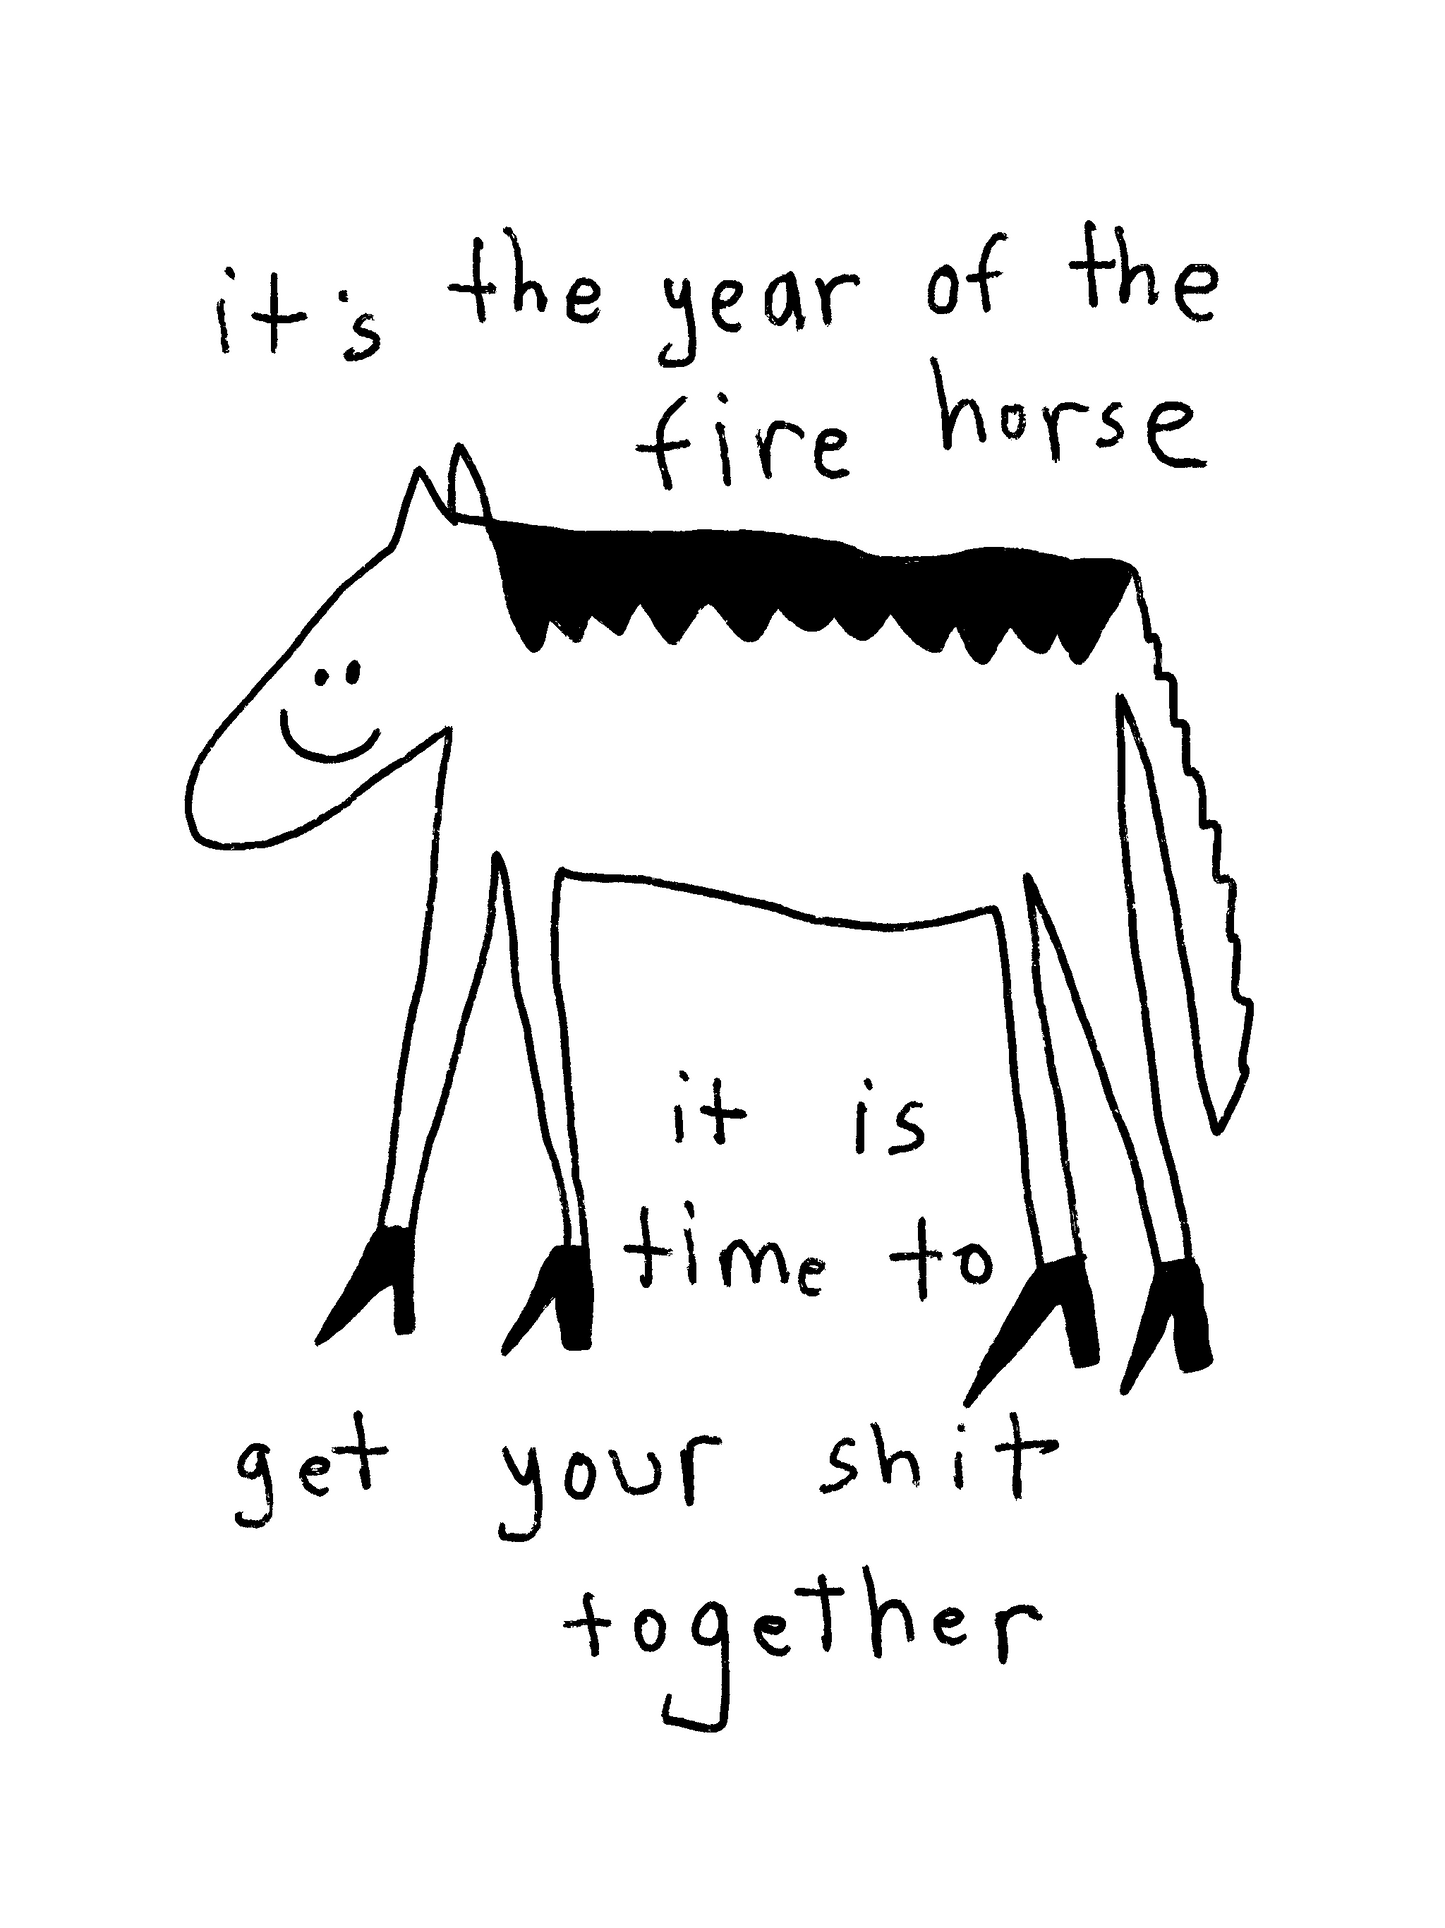 it's the year of the
fire horse
it is
time to
get your shit
together